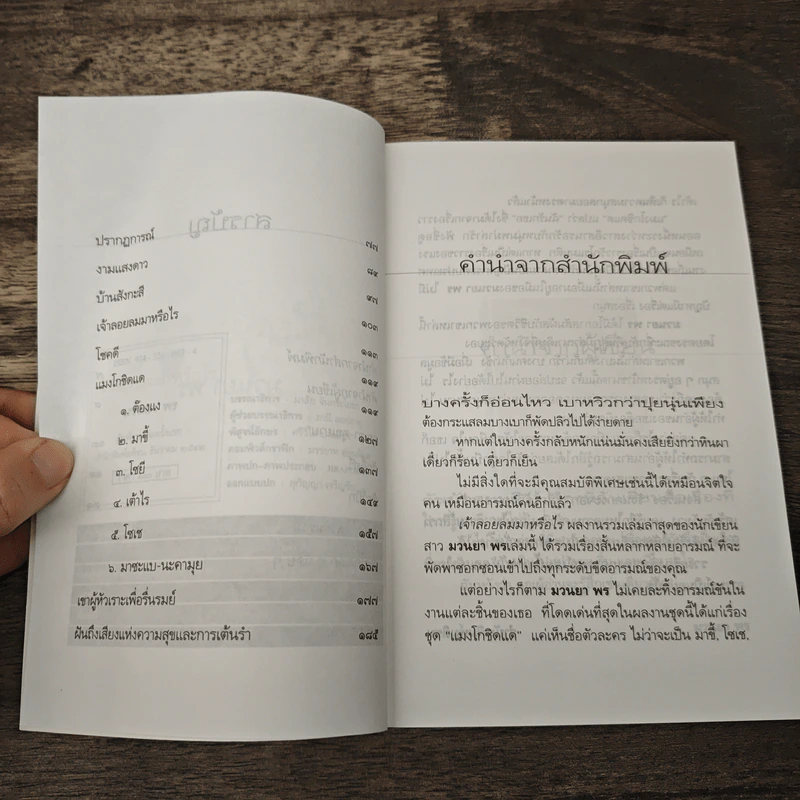 ปรากฏการณ์ ๗๗
งามแสงดาว ๘๙
บ้านสังกะสี ๙๗
เจ้าลอยลมมาหรือไร ๑๐๓
โชคดี ๑๑๓
แมงโกซิดแด ๑๑๙
๑. ต๊องแง ๑๑๙
๒. มาขี้ ๑๒๗
๓. โซยี ๑๓๗
๔. เต้าไร ๑๔๙
๕. โซเซ ๑๕๗
๖. มาซะแบ-นะคามุย ๑๖๗
เขาผู้หัวเราะเพื่อรื่นรมย์ ๑๗๗
ฝันถึงเสียงแห่งความสุขและการเต้นรำ ๑๘๕
คำนำจากสำนักพิมพ์
บางครั้งก็อ่อนไหว เบาหวิวกว่าปุยนุ่นเพียง
ต้องกระแสลมบางเบาก็พัดปลิวไปได้ง่ายดาย
หากแต่ในบางครั้งกลับหนักแน่นมั่นคงเสียยิ่งกว่าหินผา
เดี๋ยวก็ร้อน เดี๋ยวก็เย็น
ไม่มีสิ่งใดที่จะมีคุณสมบัติพิเศษเช่นนี้ได้เหมือนจิตใจ
คน เหมือนอารมณ์คนอีกแล้ว
เจ้าลอยลมมาหรือไร ผลงานรวมเล่มล่าสุดของนักเขียน
สาว มวนยา พรเล่มนี้ ได้รวมเรื่องสั้นหลากหลายอารมณ์ ที่จะ
พัดพาซอกซอนเข้าไปถึงทุกระดับขีดอารมณ์ของคุณ
แต่อย่างไรก็ตาม มวนยา พร ไม่เคยละทิ้งอารมณ์ขันใน
งานแต่ละชิ้นของเธอ ที่โดดเด่นที่สุดในผลงานชุดนี้ได้แก่เรื่อง
ชุด "แมงโกซิดแด" แค่เห็นชื่อตัวละคร ไม่ว่าจะเป็น มาขี้, โซเซ,